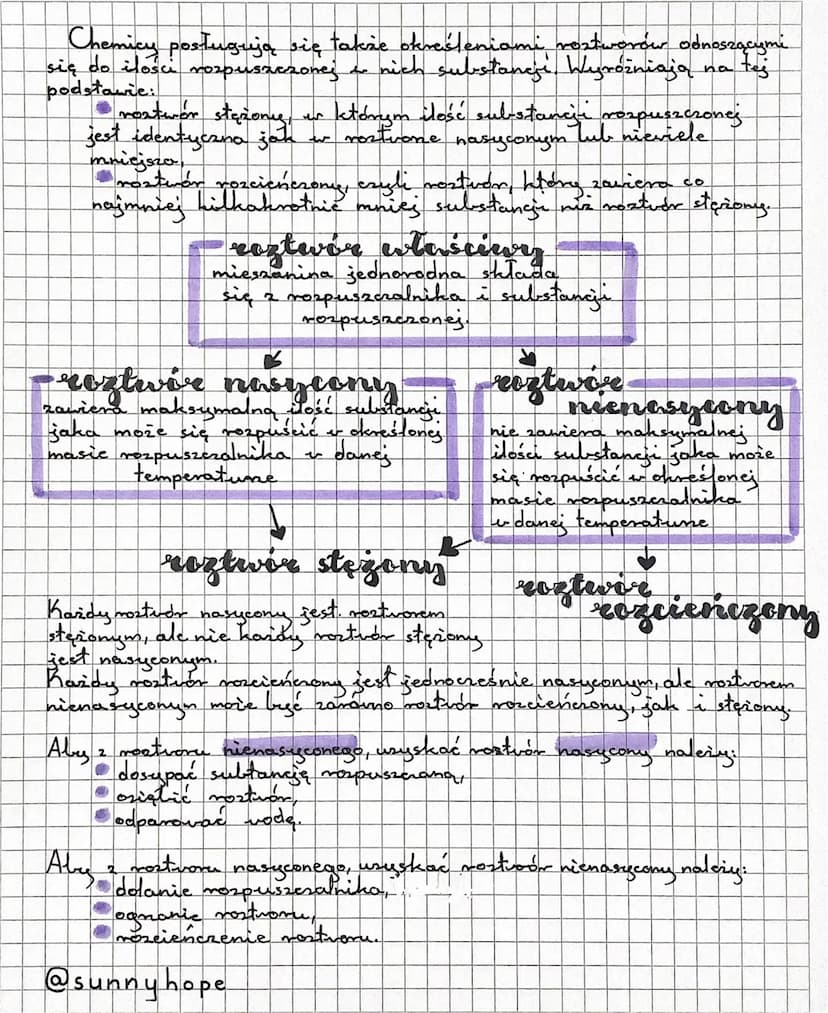 Chemicy posługują się także określeniami roztworów odnoszącymi
się do ilości rozpuszczonej w nich substancji. Wyróżniają na tej
podstawie:
roztwór stężony, w którym ilość substancji rozpuszczonej
jest identyczna jak w roztworze nasyconym lub niewiele
mniejsza,
roztwór rozcieńczony, czyli roztwór, który zawiera co
najmniej kilkakrotnie mniej substancji niż roztwór stężony.
roztwór właściwy
mieszanina jednorodna składa
się z rozpuszczalnika i substancji
rozpuszczonej.
roztwór nasycony
zawiera maksymalną ilość substancji
jaka może się rozpuścić w określonej
masie rozpuszczalnika w danej
temperaturze
roztwór
nienasycony
nie zawiera maksymalnej
ilości substancji jaka może
się rozpuścić w określonej
masie rozpuszczalnika
w danej temperaturze
roztwór stężony
roztwór
rozcieńczony
Każdy roztwór nasycony jest roztworem
stężonym, ale nie każdy roztwór stężony
jest nasyconym.
Każdy roztwór rozcieńczony jest jednocześnie nasyconym, ale roztworem
nienasyconym może być zarówno roztwór rozcieńczony, jak i stężony.
Aby z roztworu nienasyconego, uzyskać roztwór nasycony należy:
dosypać substancję rozpuszczaną,
oziębić roztwór,
odparować wodę.
Aby z roztworu nasyconego, uzyskać roztwór nienasycony należy:
dolanie rozpuszczalnika,
ogrzanie roztworu,
rozcieńczenie roztworu.
@sunnyhope